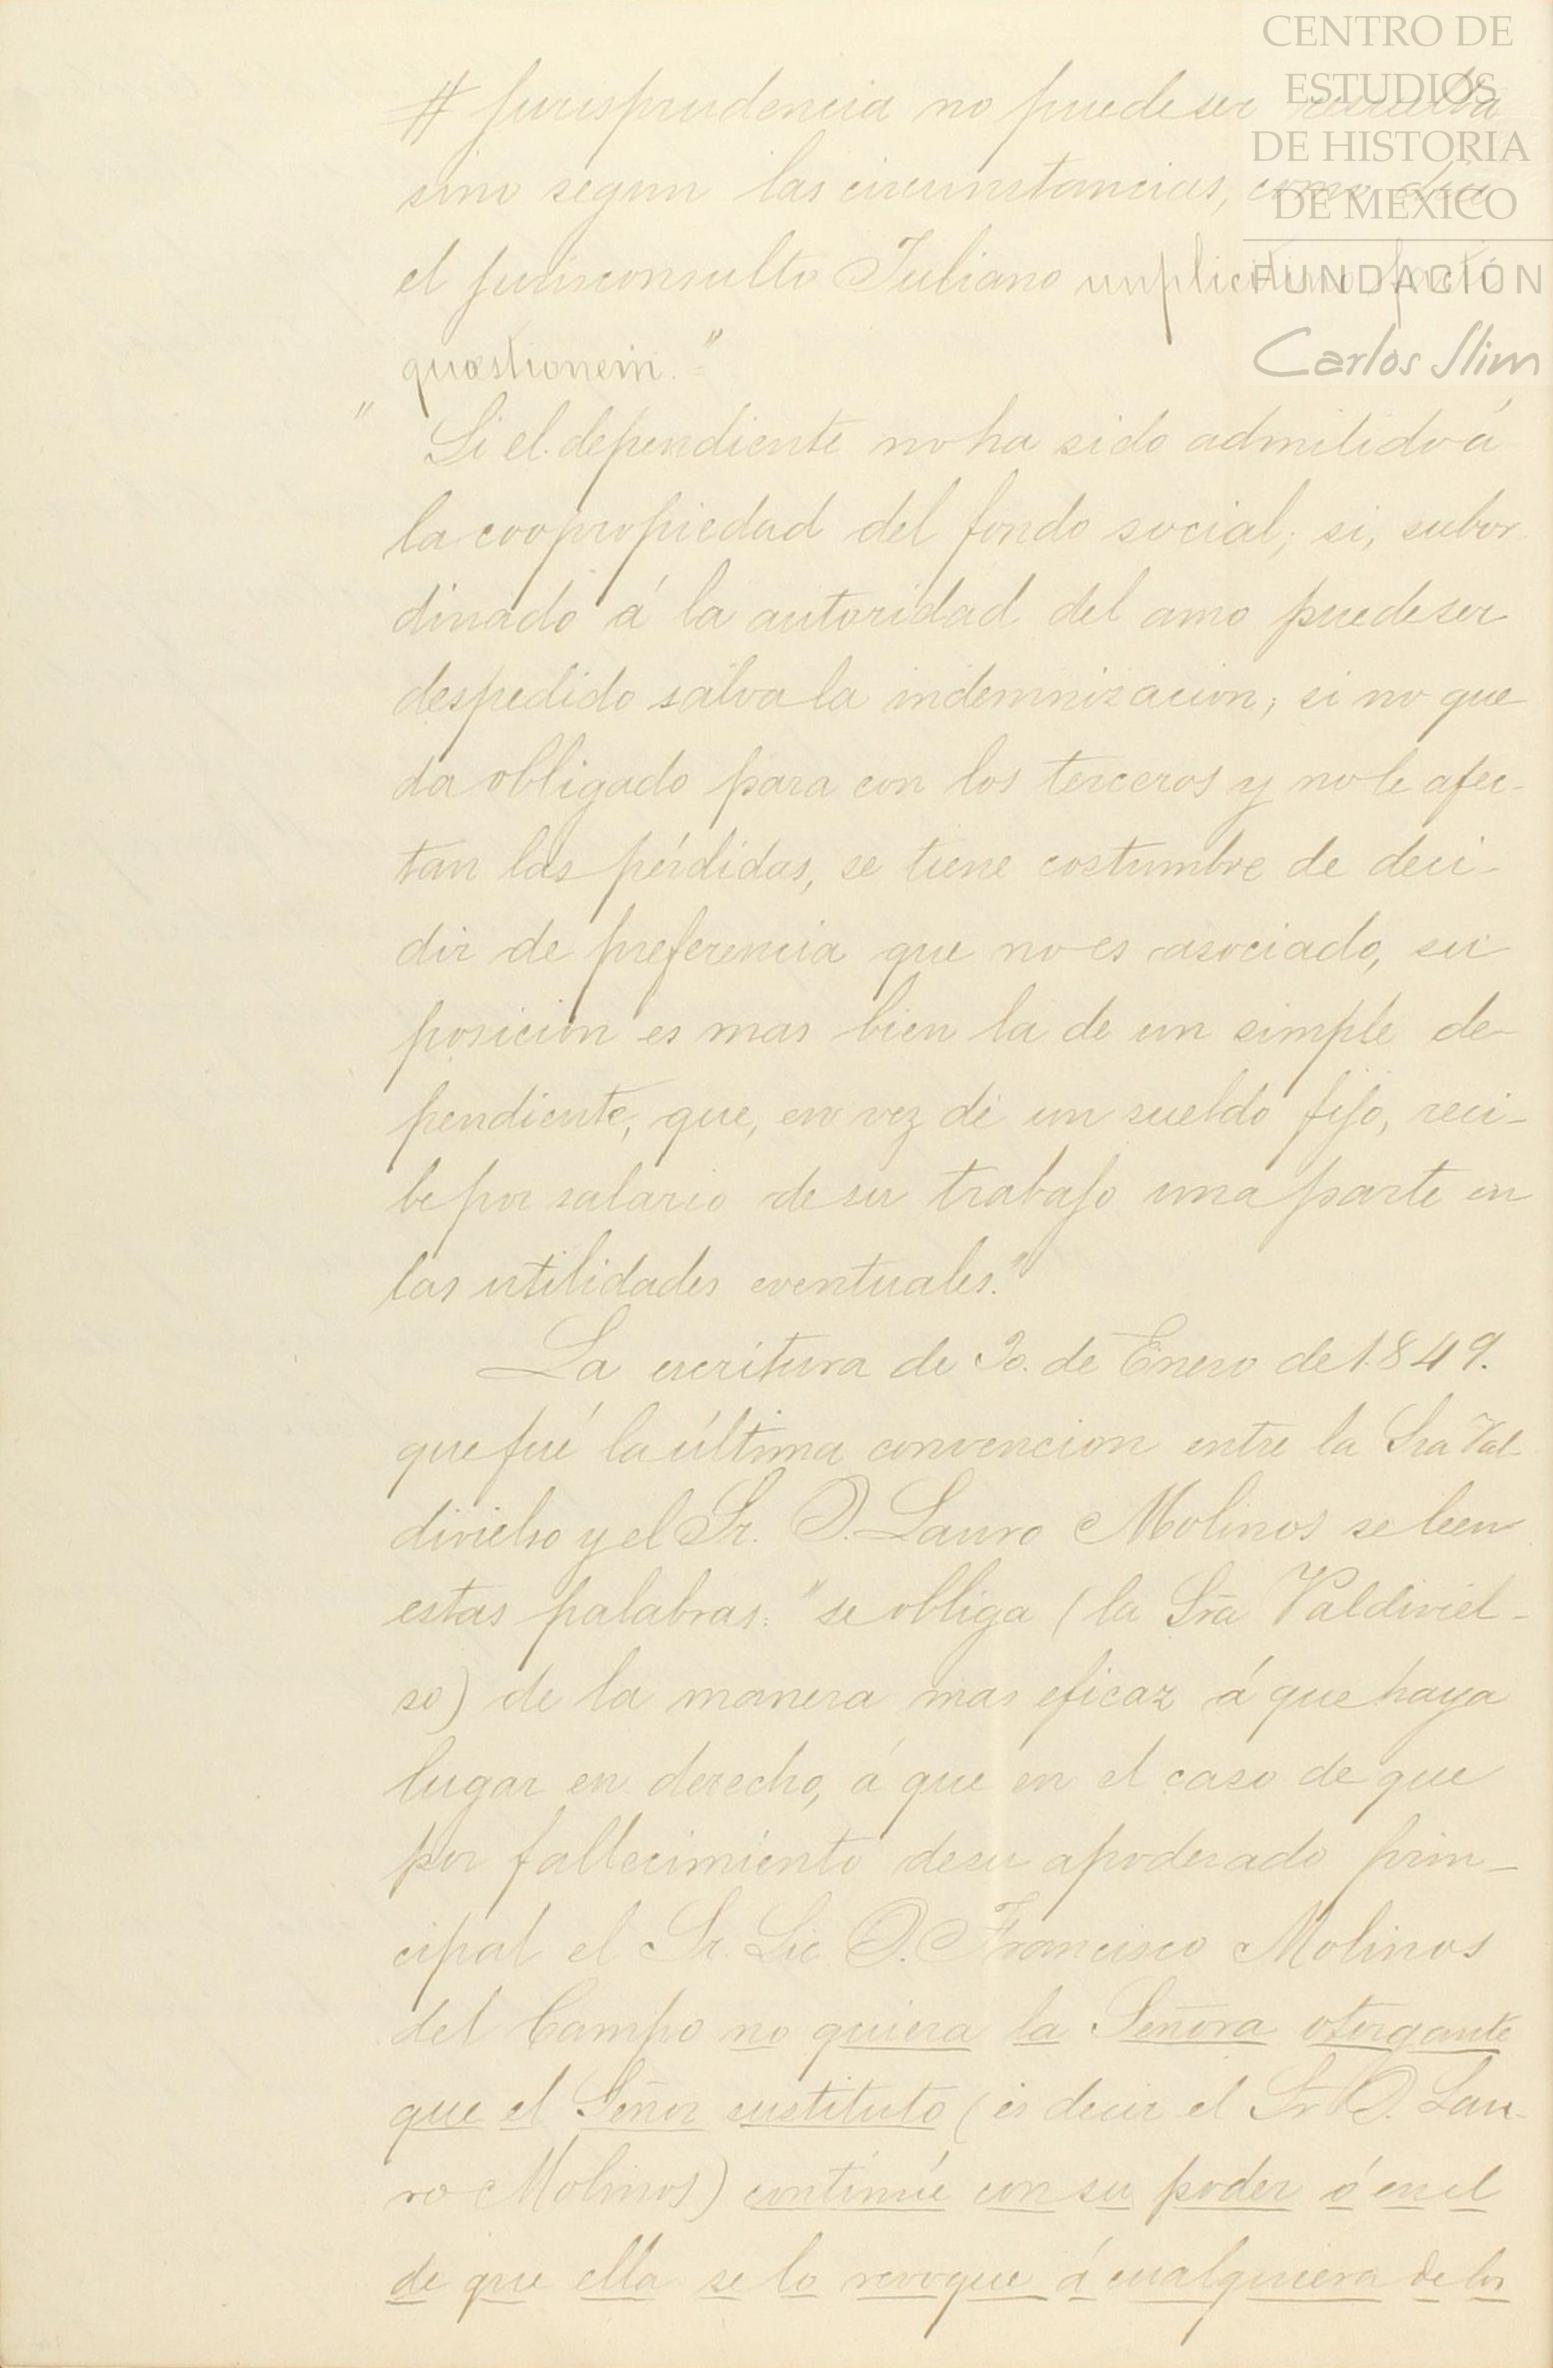 CENTRO DE
ESTUDIOS
DE HISTORIA
DE MEXICO
FUNDACIÓN
Carlos Slim
# Jurisprudencia no puede ser resuelta
sino segun las circunstancias, como dice
el jurisconsulto Juliano
quæstionem."
" Si el dependiente no ha sido admitido á
la coopropiedad del fondo social; si, subor
dinado á la autoridad del amo puede ser
despedido salva la indemnizacion; si no que
da obligado para con los terceros y no le afec-
tan las pérdidas, se tiene costumbre de deci-
dir de preferencia que no es asociado, su
posicion es mas bien la de un simple de-
pendiente, que, en vez de un sueldo fijo, reci-
be por salario de su trabajo una parte en
las utilidades eventuales."
La escritura de 20. de Enero de 1849.
que fué la última convencion entre la Sra Val
divielso y el Sr. D. Lauro Molinos se leen
estas palabras: "se obliga (la Sra Valdiviel-
so) de la manera mas eficaz á que haya
lugar en derecho, á que en el caso de que
por fallecimiento de su apoderado prin-
cipal el Sr. Lic D. Francisco Molinos
del Campo no quiera la Señora otorgante
que el Señor sustituto (es decir el Sr D. Lau-
ro Molinos) continúe con su poder ó en el
de que ella se lo revoque á cualquiera de los